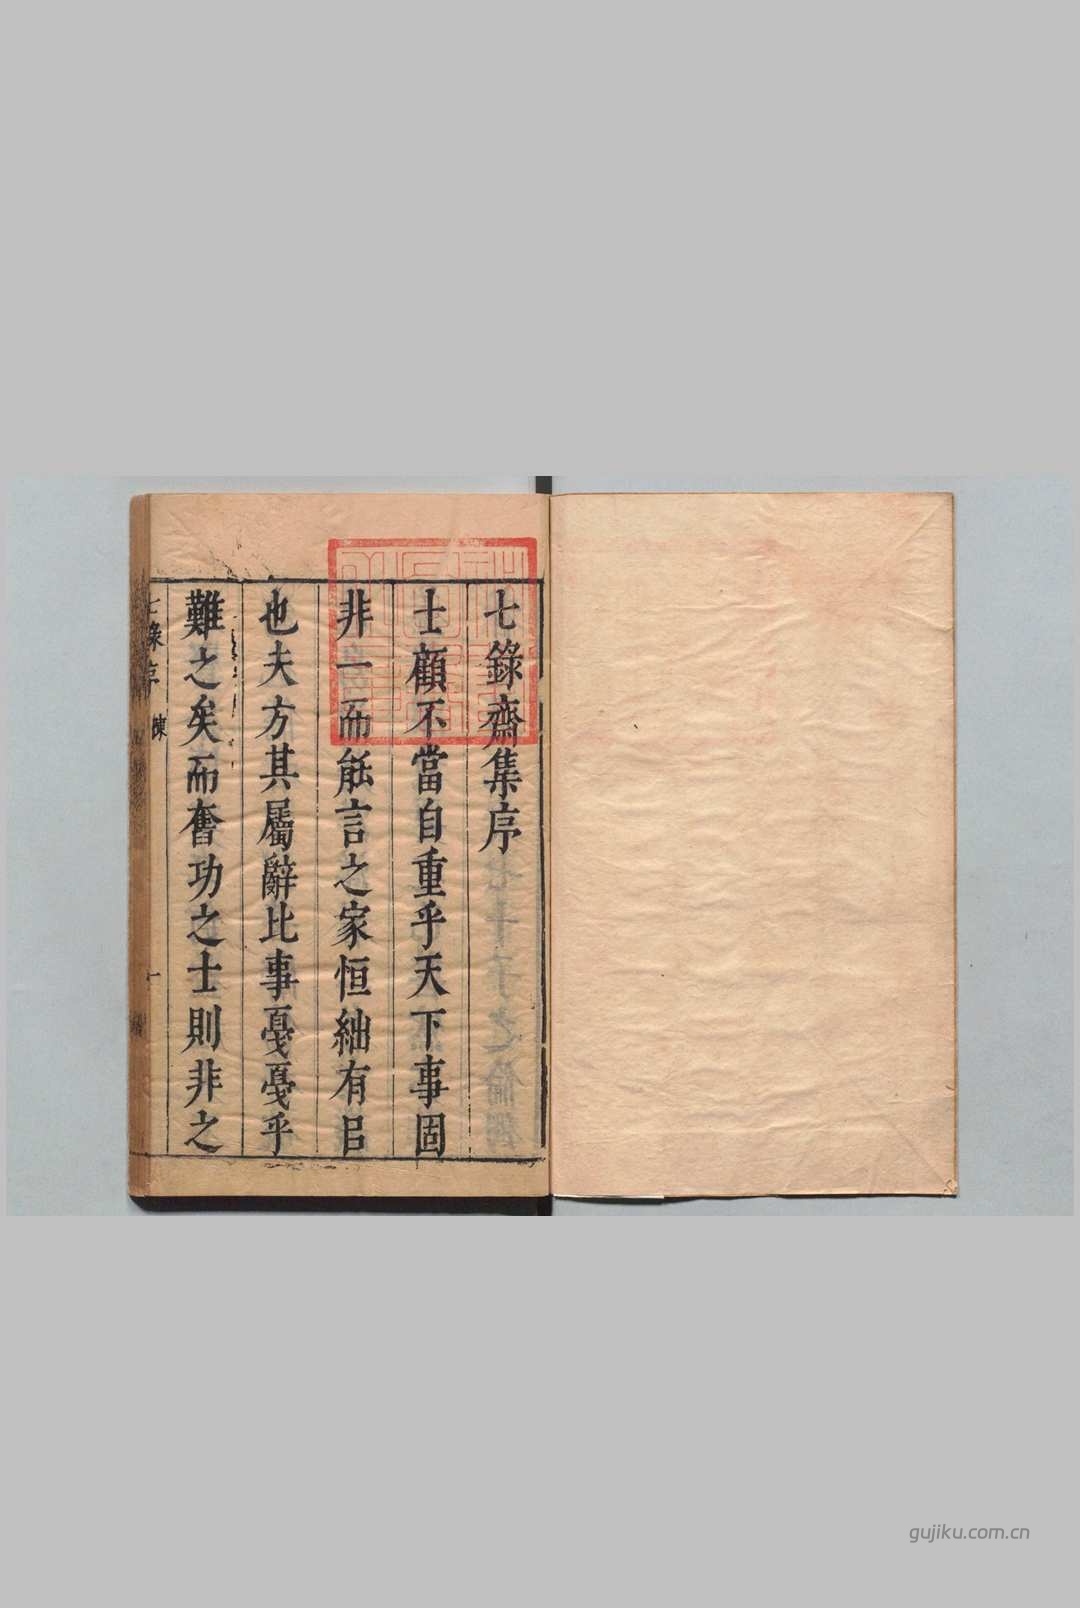 七錄齋集序
士顧不當自重乎天下事固
非一而能言之家恒紬有㠯
也夫方其屬辭比事戞戞乎
難之矣而奮功之士則非之
七錄序
一
gujiku.com.cn